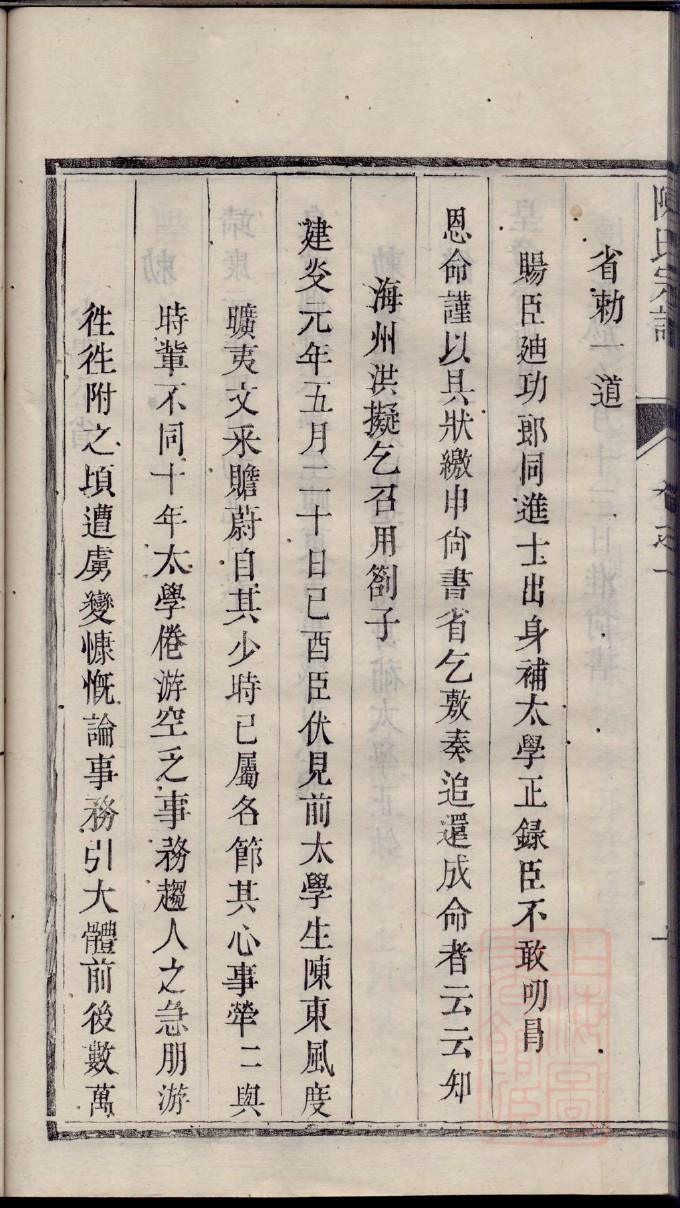 陳氏宗譜
卷之一
省勅一道
賜臣廸功郎同進士出身補太學正録臣不敢叨冐
恩命謹以具狀繳申尙書省乞敷奏追還成命者云云知
海州洪擬乞召用劄子
建炎元年五月二十日己酉臣伏見前太學生陳東風度
曠夷文采贍蔚自其少時已屬名節其心事犖二與
時輩不同十年太學倦游空乏事務趨人之急朋游
徃徃附之頃遭虜變慷慨論事務引大體前後數萬